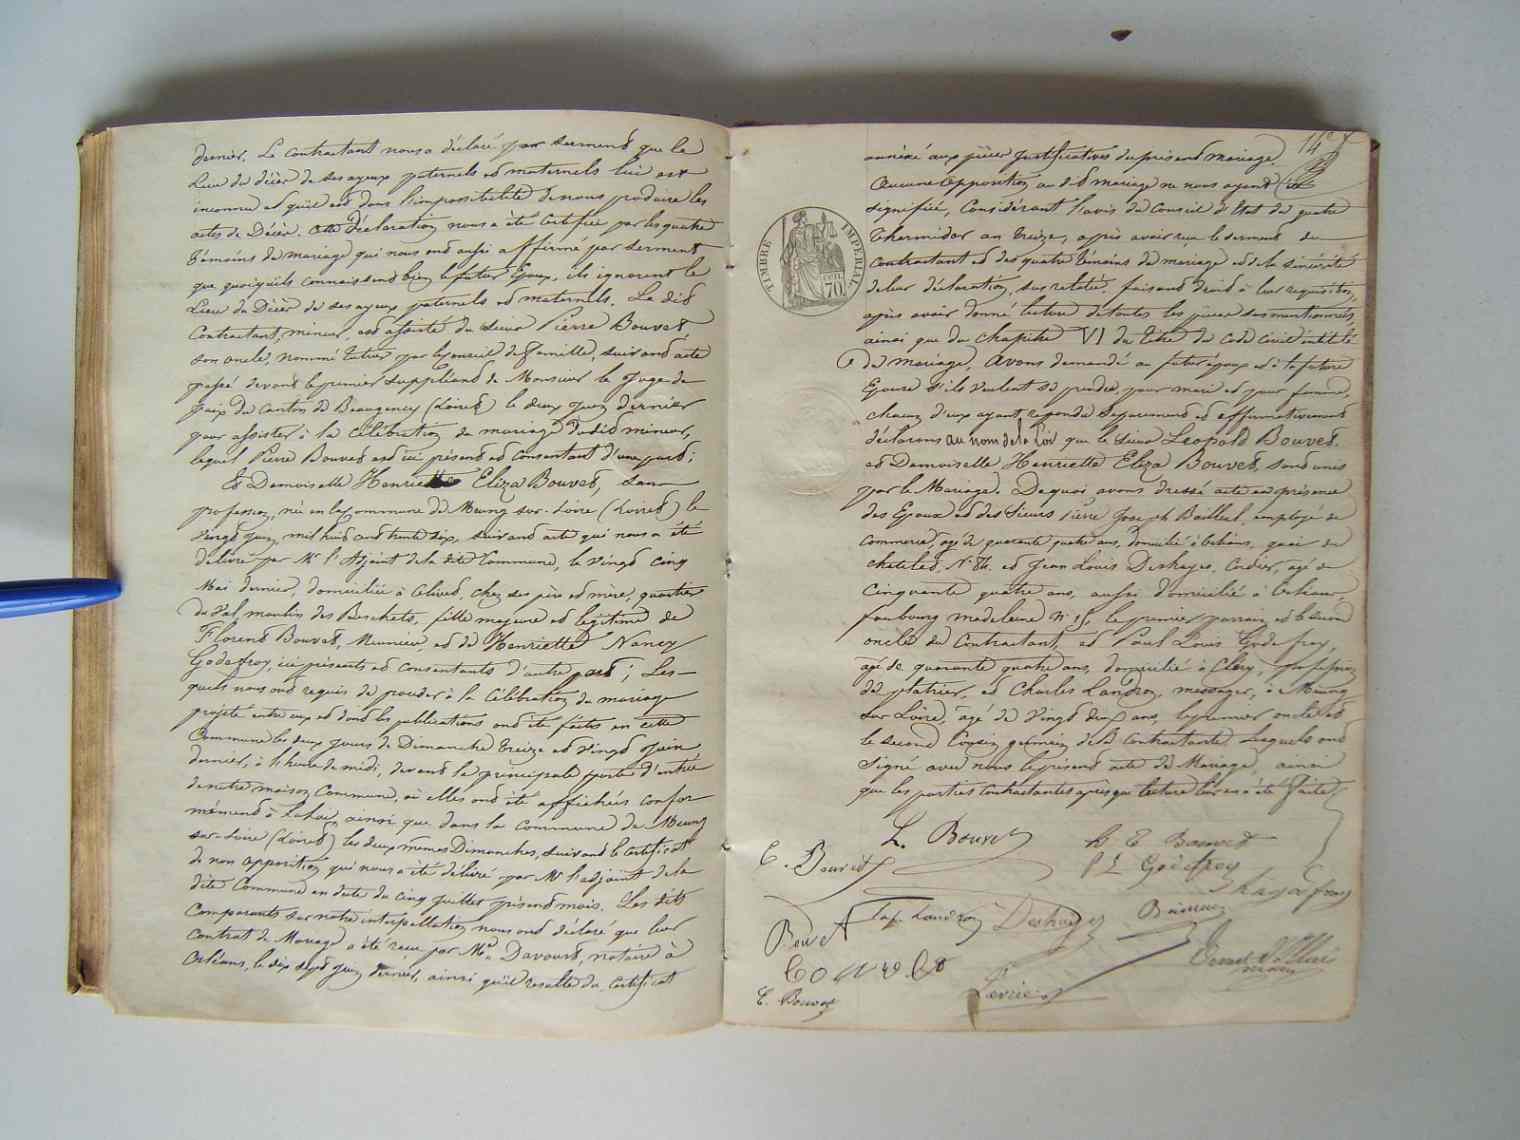 dernier. Le contractant nous a déclaré par serment que le
Lieu du décès de ses ayeux paternels et maternels lui est
inconnu et qu'il est dans l'impossibilité de nous produire les
actes de Décès. Cette Déclaration nous a été certifiée par les quatre
témoins du mariage qui nous ont aussi affirmé par serment
que quoiqu'ils connaissent bien le futur Epoux, ils ignorent le
Lieu du Décès de ses ayeux paternels et maternels. Le dit
Contractant, mineur, est assisté du Sieur Pierre Bouvet
son oncle, nommé tuteur par le conseil de famille, suivant acte
passé devant le premier suppléant de Monsieur le Juge de
paix du canton de Beaugency (Loiret) le deux Juin dernier
pour assister à la célébration du mariage du dit mineur,
lequel Pierre Bouvet est ici présent et consentant d'une part ;
Et Demoiselle Henriette Eliza Bouvet, sans
profession, née en la Commune de Meung sur-Loire (Loiret) le
vingt Juin mil huit cent trente six, suivant acte qui nous a été
délivré par Mr l'Adjoint de la dite Commune, le vingt cinq
Mai dernier, domiciliée à Olivet, chez ses père et mère, quartier
du Val, moulin des Béchets, fille majeure et légitime de
Florent Bouvet, Meunier, et de Henriette Nancy
Godefroy, ici présents et consentants d'autre part ; Les-
quels nous ont requis de procéder à la Célébration du mariage
projeté entre eux et dont les publications ont été faites en cette
Commune les deux jours de Dimanche treize et vingt Juin
dernier, à l'heure de midi, devant la principale porte d'entrée
de notre maison Commune, où elles ont été affichées confor
mément à la Loi, ainsi que dans la Commune de Meung
sur-Loire (Loiret) les deux mêmes Dimanches, suivant le certificat
de non opposition qui nous a été délivré par Mr l'adjoint de la
dite Commune en date du cinq Juillet présent mois. Les dits
Comparants sur notre interpellation nous ont déclaré que leur
Contrat de Mariage a été reçu par Me Davoust, notaire à
Orléans, le dix sept Juin dernier, ainsi qu'il résulte du certificat
14e
annéxé aux pièces justificatives du présent mariage.
Aucune opposition au dit mariage ne nous ayant été
signifiée, Considérant l'avis du Conseil d'Etat du quatre
Thermidor an treize, après avoir reçu le serment du
Contractant et des quatre témoins du mariage et de la sincérité
de leur déclaration, sus relatée, faisant droit à leur requisition,
après avoir donné lecture de toutes les pièces sus mentionnées,
ainsi que du chapitre VI du titre du Code Civil intitulé
du mariage, Avons demandé au futur époux et à la future
Epouse s'ils veulent se prendre pour mari et pour femme,
chacun d'eux ayant répondu séparément et affirmativement
déclarons au nom de la Loi que le Sieur Léopold Bouvet
et Demoiselle Henriette Eliza Bouvet, sont unis
par le Mariage. De quoi avons dressé acte en présence
des Epoux et des Sieurs Pierre Joseph Bailleul, employé de
Commerce, agé de quarante quatre ans, domicilié à Orléans, quai du
Chatelet, No 84. et Jean Louis Deshayes, Cordier, agé de
Cinquante quatre ans, aussi domicilié à Orléans,
faubourg madeleine No 15, le premier parrain et le second
oncle du Contractant, et Paul Louis Godefroy,
agé de quarante quatre ans, domicilié à Cléry, profession
de platrier, et Charles Landron, messager, à Meung
sur Loire, agé de vingt deux ans, le premier oncle et
le second Cousin germain de la Contractante. Lesquels ont
Signé avec nous le présent acte de Mariage, ainsi
que les parties Contractantes après que lecture leur en a été faite.
TIMBRE IMPÉRIAL
70
L. Bouvet
H E Bouvet
C. Bouvet
P L Godefroy
Landron
Deshayes
Bouvet
E. Bouvet